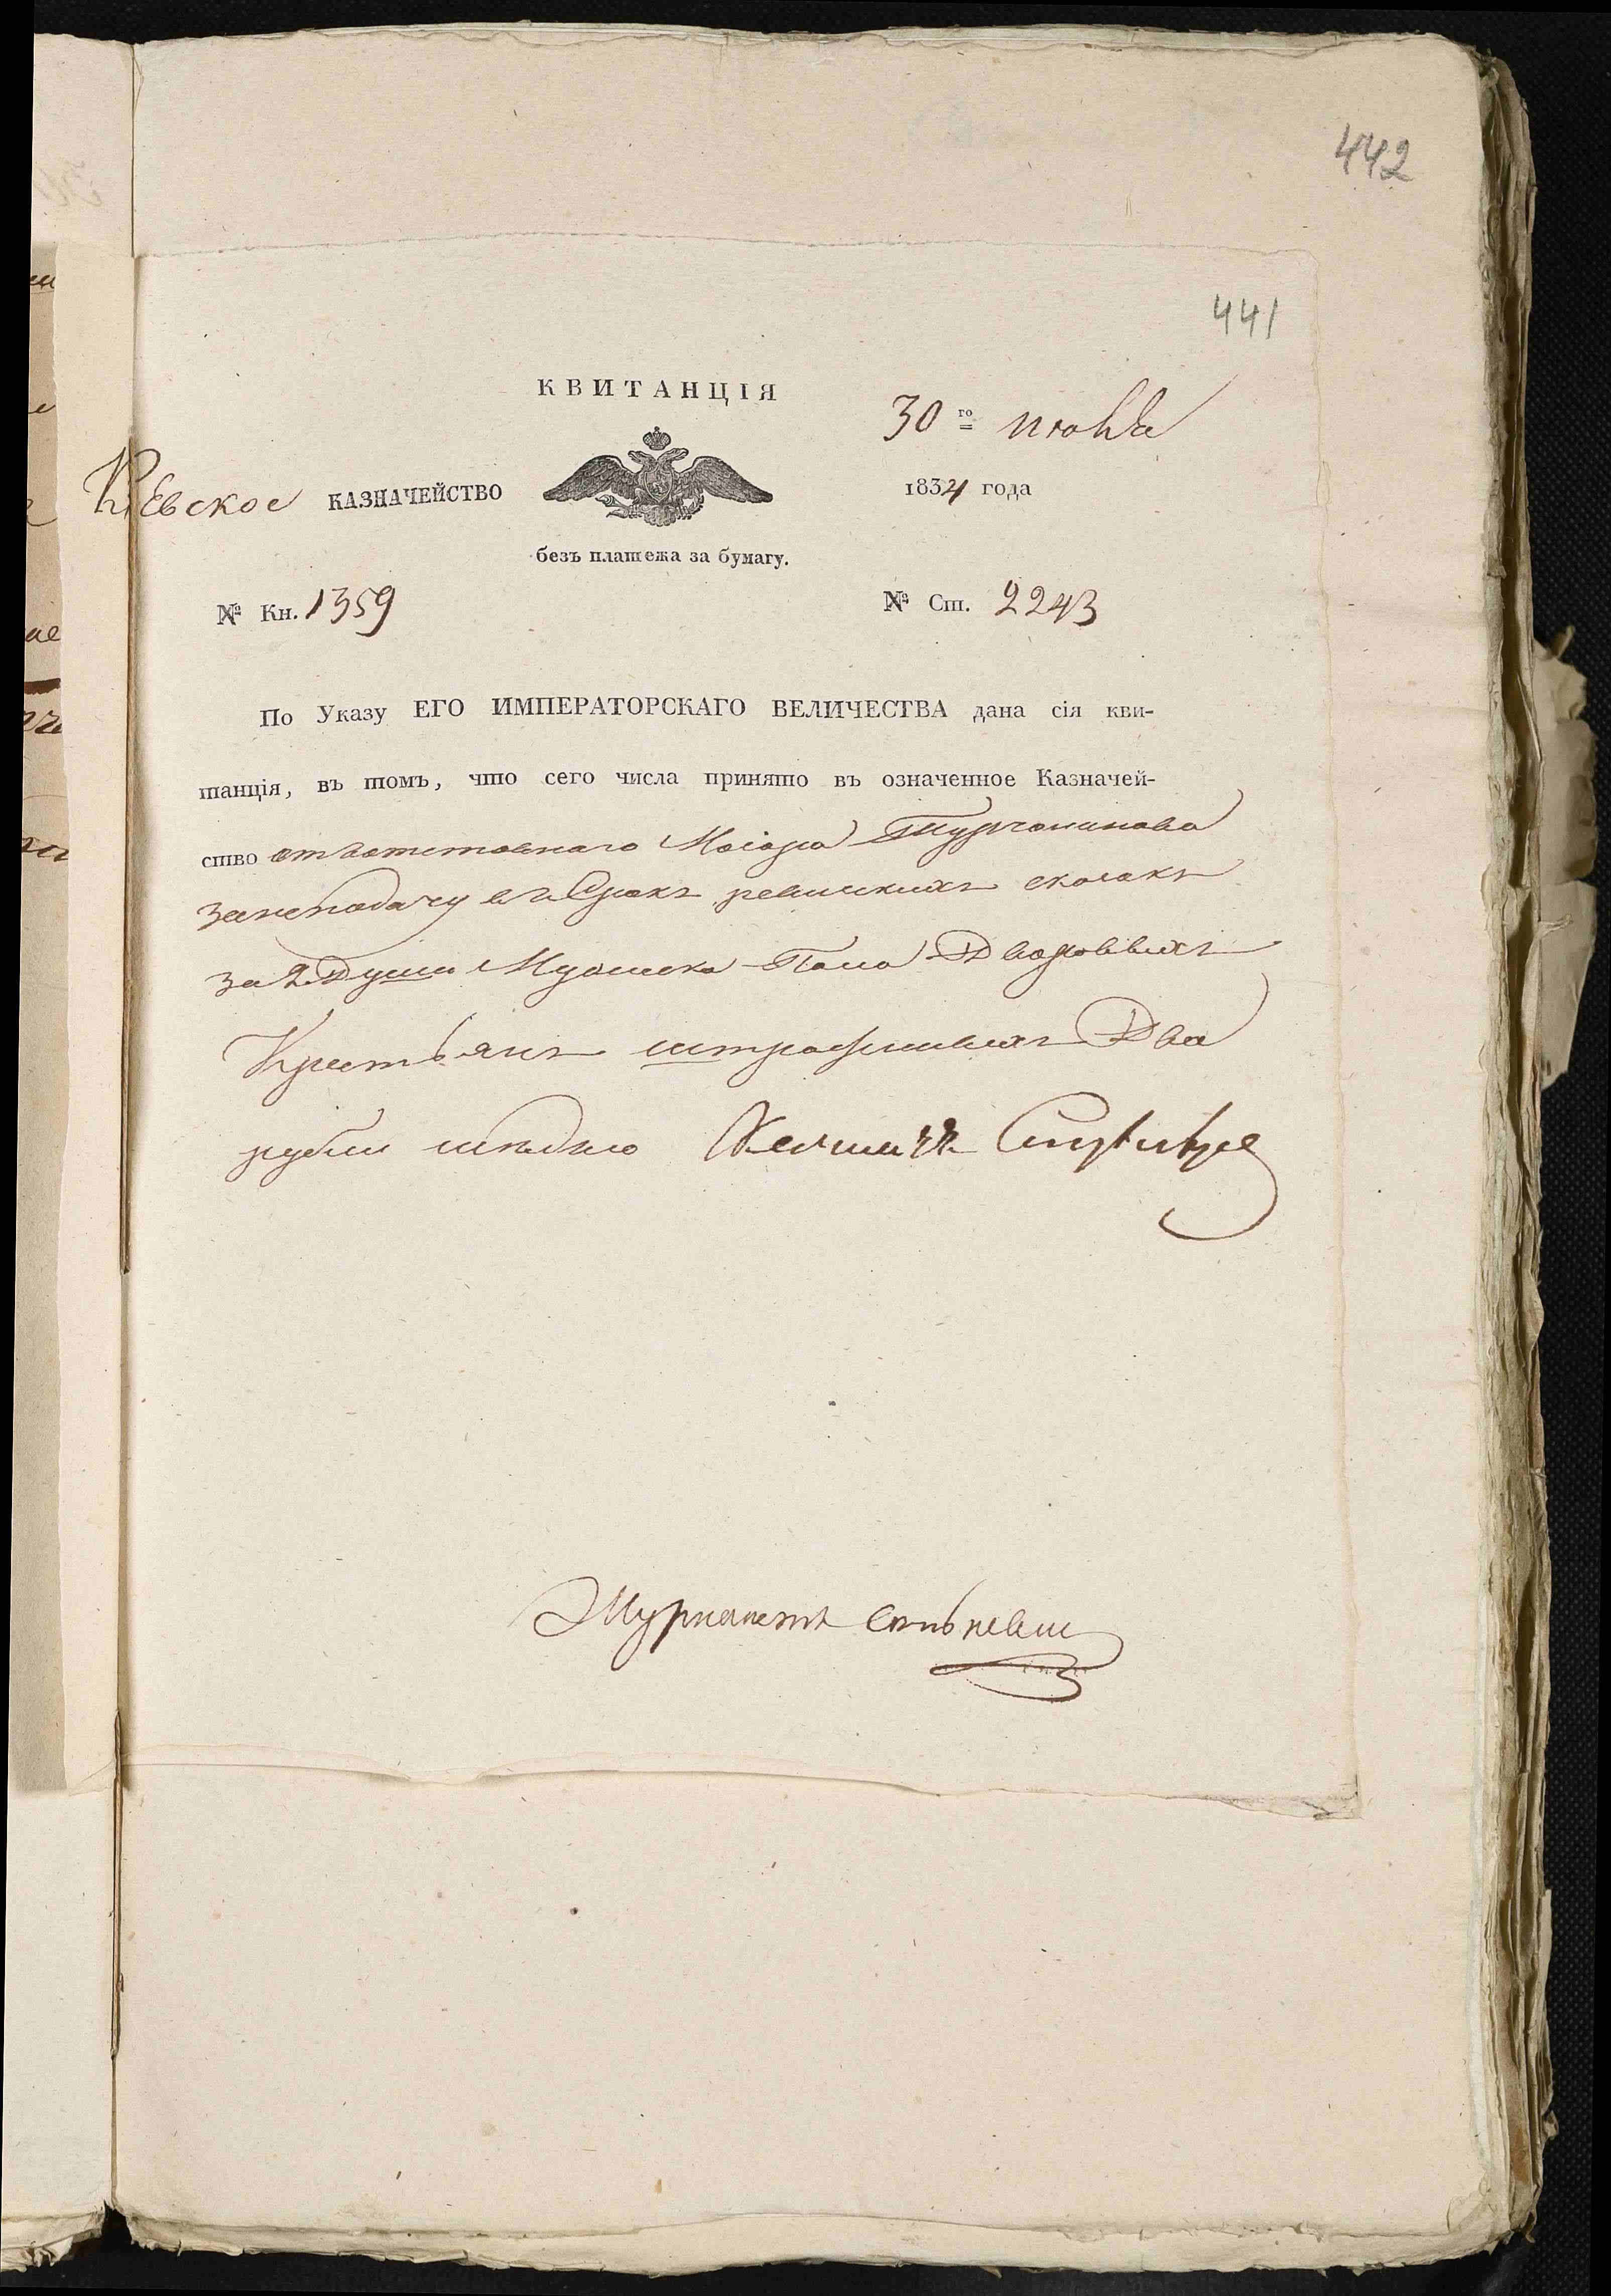 442
441
КВИТАНЦІЯ
30 го июня
Кіевское КАЗНАЧЕЙСТВО
1834 года
безъ платежа за бумагу.
№ Кн. 1359
№ Ст. 2243
По Указу ЕГО ИМПЕРАТОРСКАГО ВЕЛИЧЕСТВА дана сія кви-
танція, въ томъ, что сего числа принято въ означенное Казначей-
ство отъ отставнаго Маіора Турчанинова
за неподачу въ Срокъ ревизкихъ сказокъ
за 2 Души Мужеска Пола Дворовыхъ
Крестьянъ штрафныхъ Два
рубли мѣдью
Журналистъ